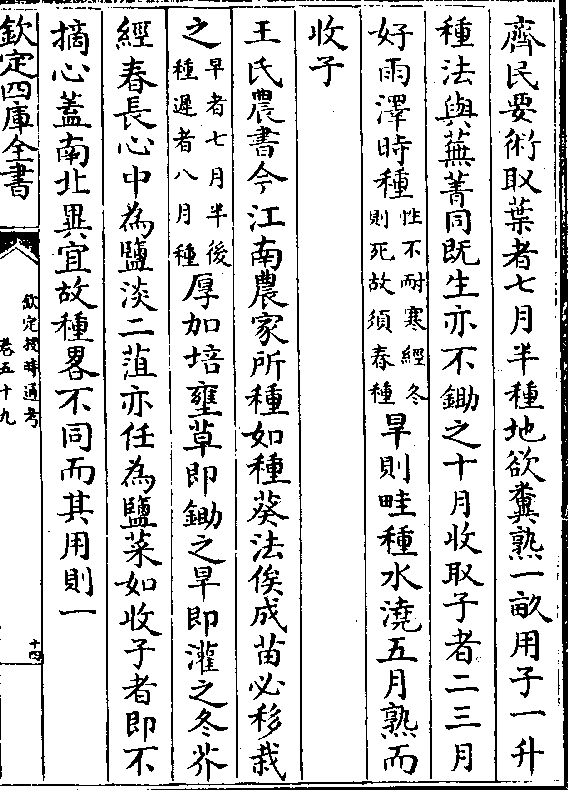 齊民要術取葉者七月半種地欲糞熟一畝用子一升
種法與蕪菁同既生亦不鋤之十月收取子者二三月
好雨澤時種性不耐寒經冬則死故須春種旱則畦種水澆五月熟而
收子
王氏農書今江南農家所種如種葵法俟成苗必移栽
之早者七月半後種遲者八月種厚加培壅草即鋤之旱即灌之冬芥
經春長心中為鹽淡二菹亦任為鹽菜如收子者即不
摘心蓋南北異宜故種畧不同而其用則一
欽定四庫全書
欽定授時通考
卷五十九
十四